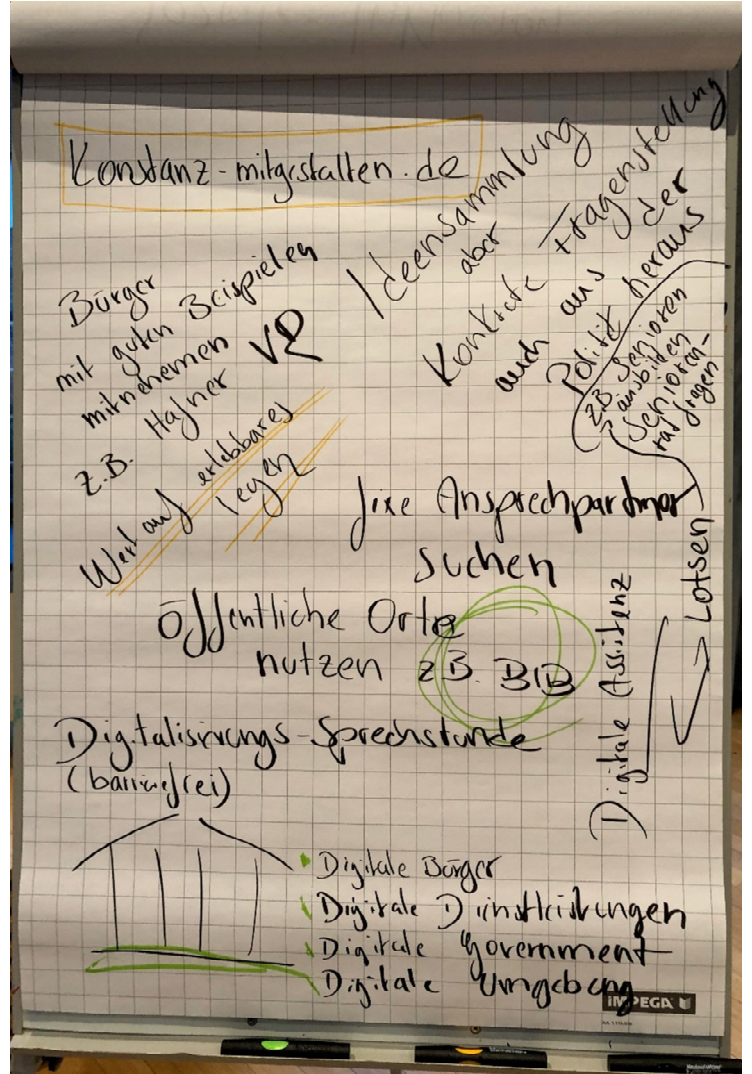 Konstanz-mitgestalten.de
Bürger
mit guten Beispielen
mitnehmen VR
z.B. Hafner
Wert auf erlebbares
legen
Ideensammlung
aber
Konkrete Fragenstellung
auch aus der
Politik heraus
z.B. Senioren
ausbilden
Senioren-
rad fragen
fixe Ansprechpartner
suchen
öffentliche Orte
nutzen z.B. BIB
Digitale Assistenz
Lotsen
Digitalisierungs-Sprechstunde
(barrierefrei)
Digitale Bürger
Digitale Dienstleistungen
Digitale Government
Digitale Umgebung
IMPEGA